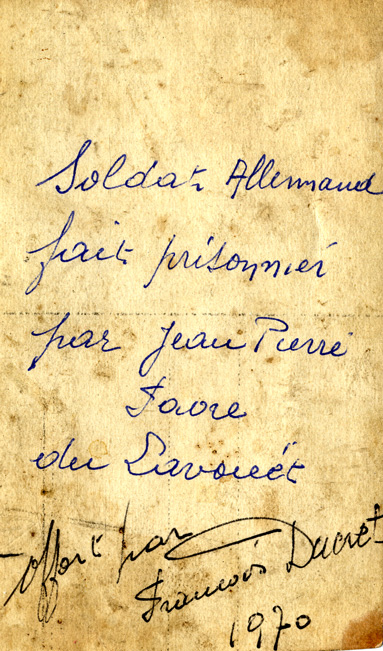 Soldat Allemand
fait prisonnier
par Jean Pierre
Favre
du Lavouët
offert par
François Ducret
1970